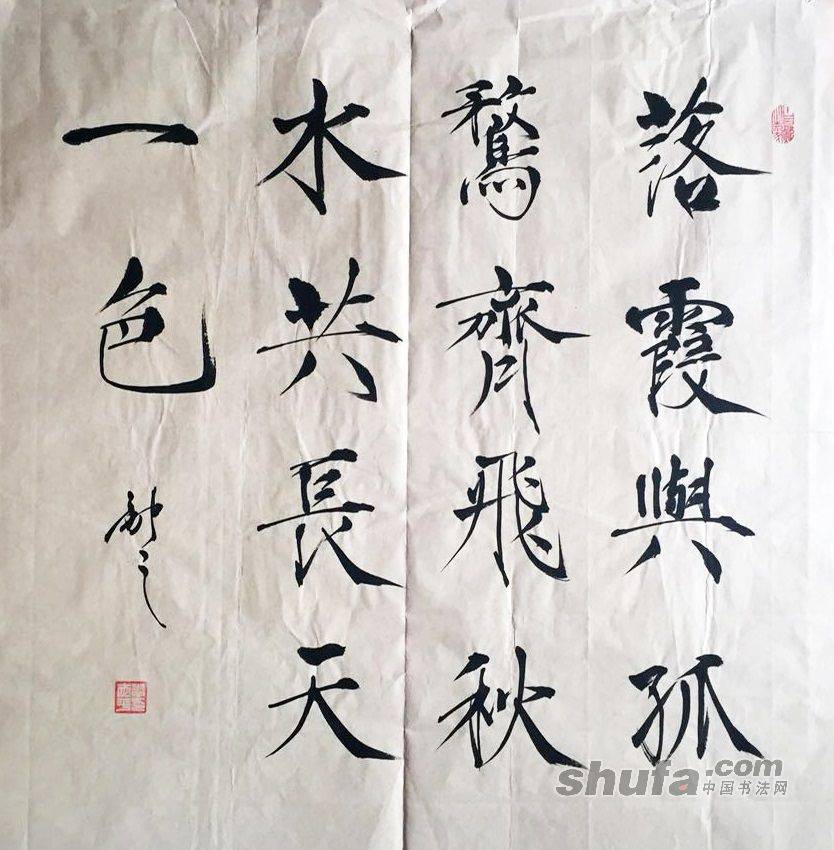 落霞與孤
鶩齊飛秋
水共長天
一色
shufa.com
中国书法网